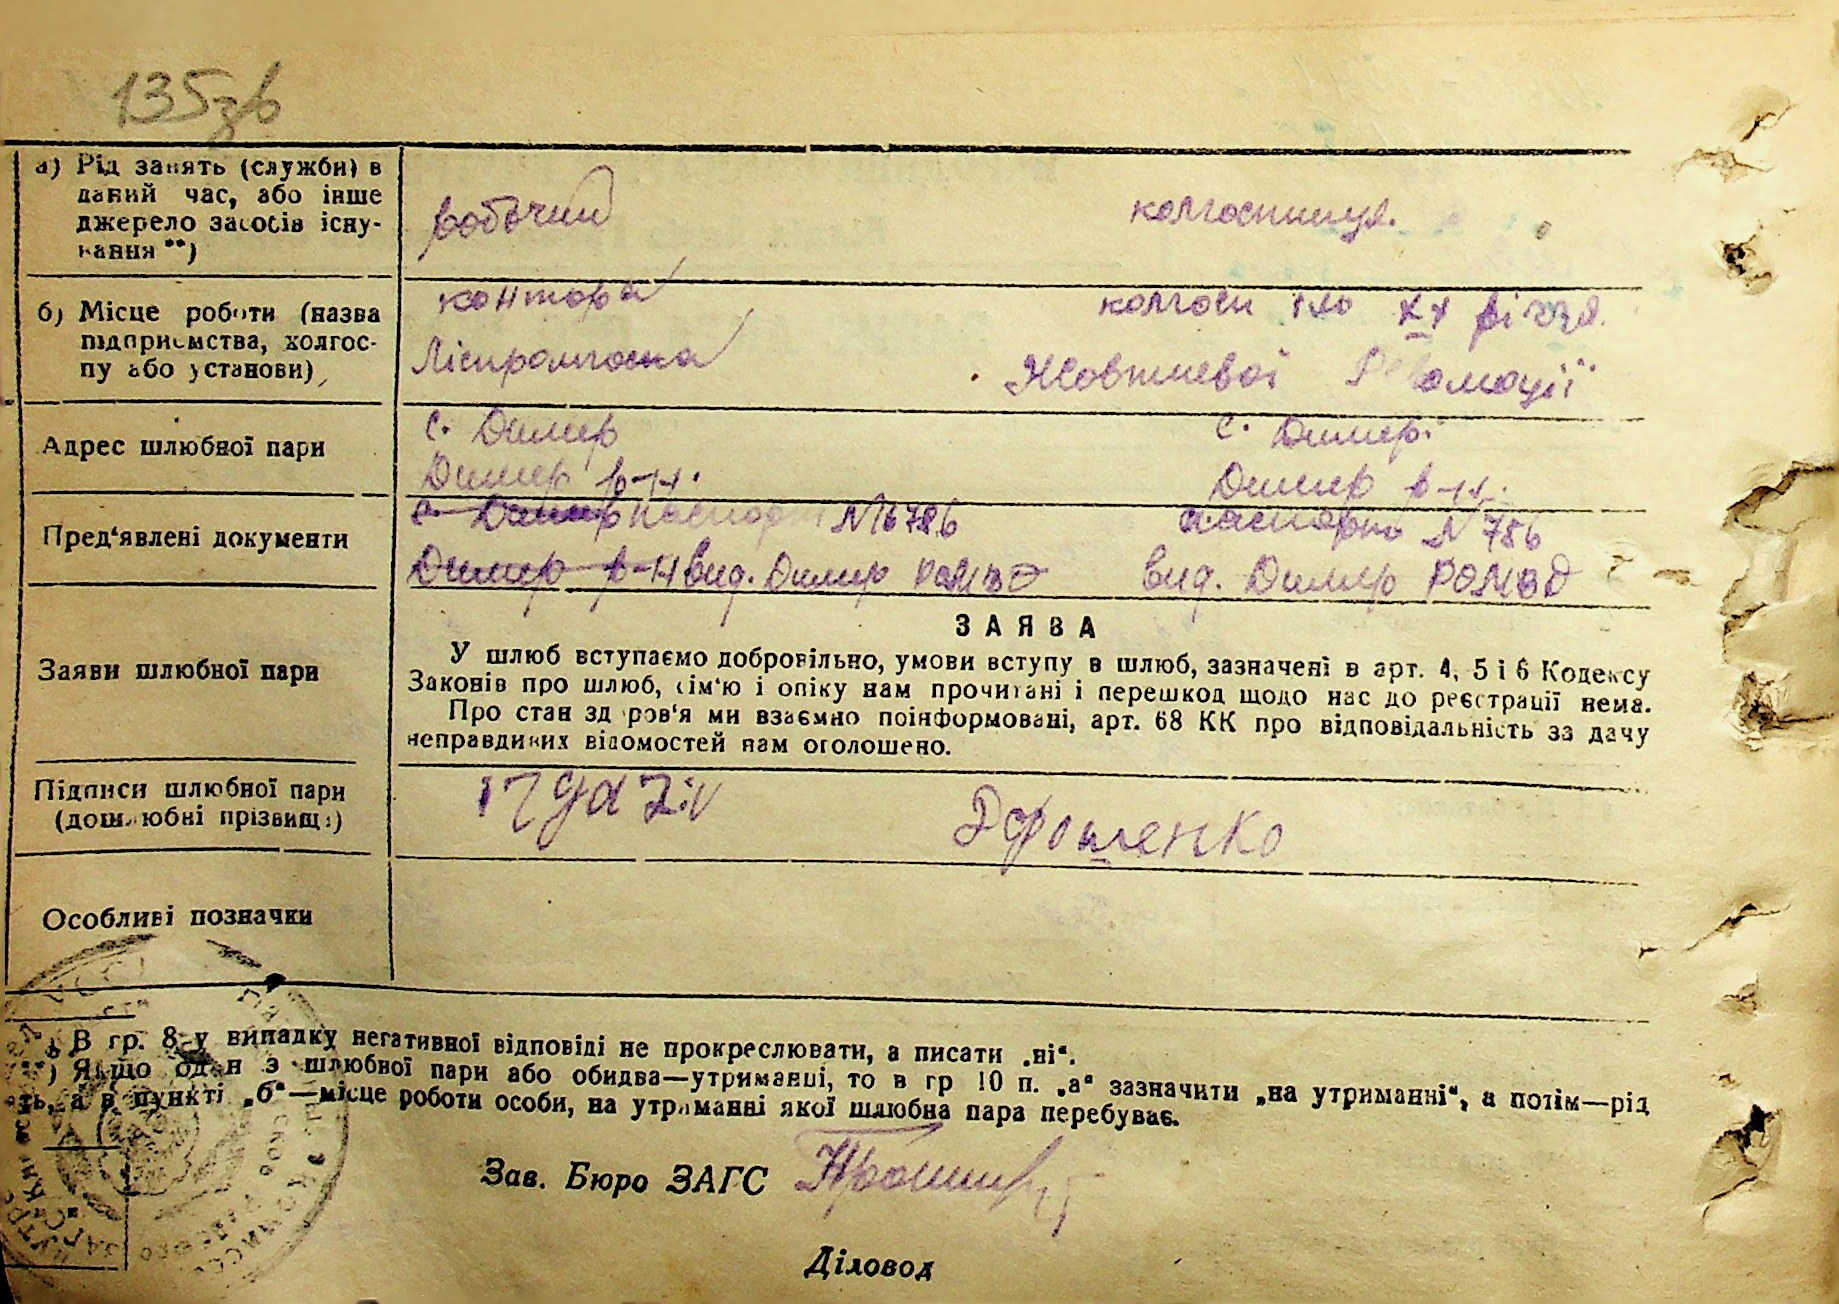 135зв
а) Рід занять (служби) в
даний час, або інше
джерело засобів існу-
вання **)
робочий
колгоспниця.
б) Місце роботи (назва
підприємства, колгос-
пу або установи)
контора
Ліспромгоспа
колгосп ХХ річчя
Жовтневої Революції
Адрес шлюбної пари
с. Димер
Димер р-н.
с. Димер.
Димер р-н.
Пред'явлені документи
с. Димер паспорт №16786
Димер р-н вид. Димер РОМВД
паспорт № 786
вид. Димер РОМВД
Заяви шлюбної пари
ЗАЯВА
У шлюб вступаємо добровільно, умови вступу в шлюб, зазначені в арт. 4, 5 і 6 Кодексу
Законів про шлюб, сім'ю і опіку нам прочитані і перешкод щодо нас до реєстрації нема.
Про стан здоров'я ми взаємно поінформовані, арт. 68 КК про відповідальність за дачу
неправдивих відомостей нам оголошено.
Підписи шлюбної пари
(дошлюбні прізвища)
Особливі позначки
*) В гр. 8-у випадку негативної відповіді не прокреслювати, а писати „ні“.
**) Якщо один з шлюбної пари або обидва—утриманці, то в гр 10 п. „а“ зазначити „на утриманні“, а потім—рід
ть, а в пункті „б“—місце роботи особи, на утриманні якої шлюбна пара перебуває.
Зав. Бюро ЗАГС
Діловод